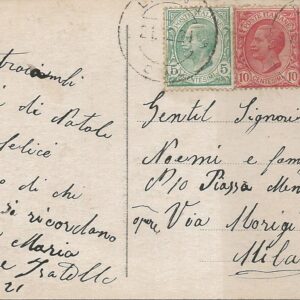 troiambi
di Natale
felice
o di chi
ricordano
Maria
e Fratello
21
POSTE ITALIANE
5 CENTESIMI 5
POSTE ITALIANE
10 CENTESIMI 10
Gentil Signorin
Noemi e fam
No 10 Piazza Men
opure Via Morigi
Mila